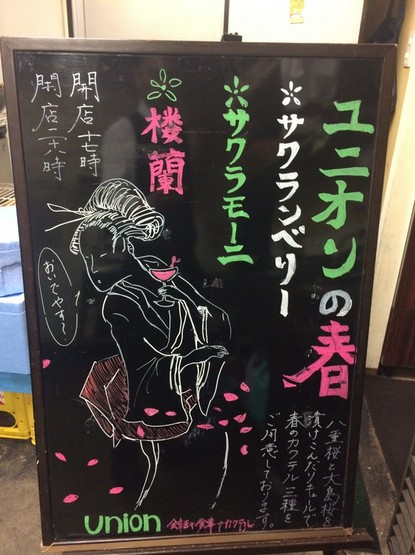 ユニオンの春
*サクランベリー
*サクラモーニ
楼蘭
開店十七時
閉店二六時
おいでやす〜
八重桜と大島桜を
漬けこんだリキュールで
春のカクテル三種を
ご用意しております。
union 食事 カクテル